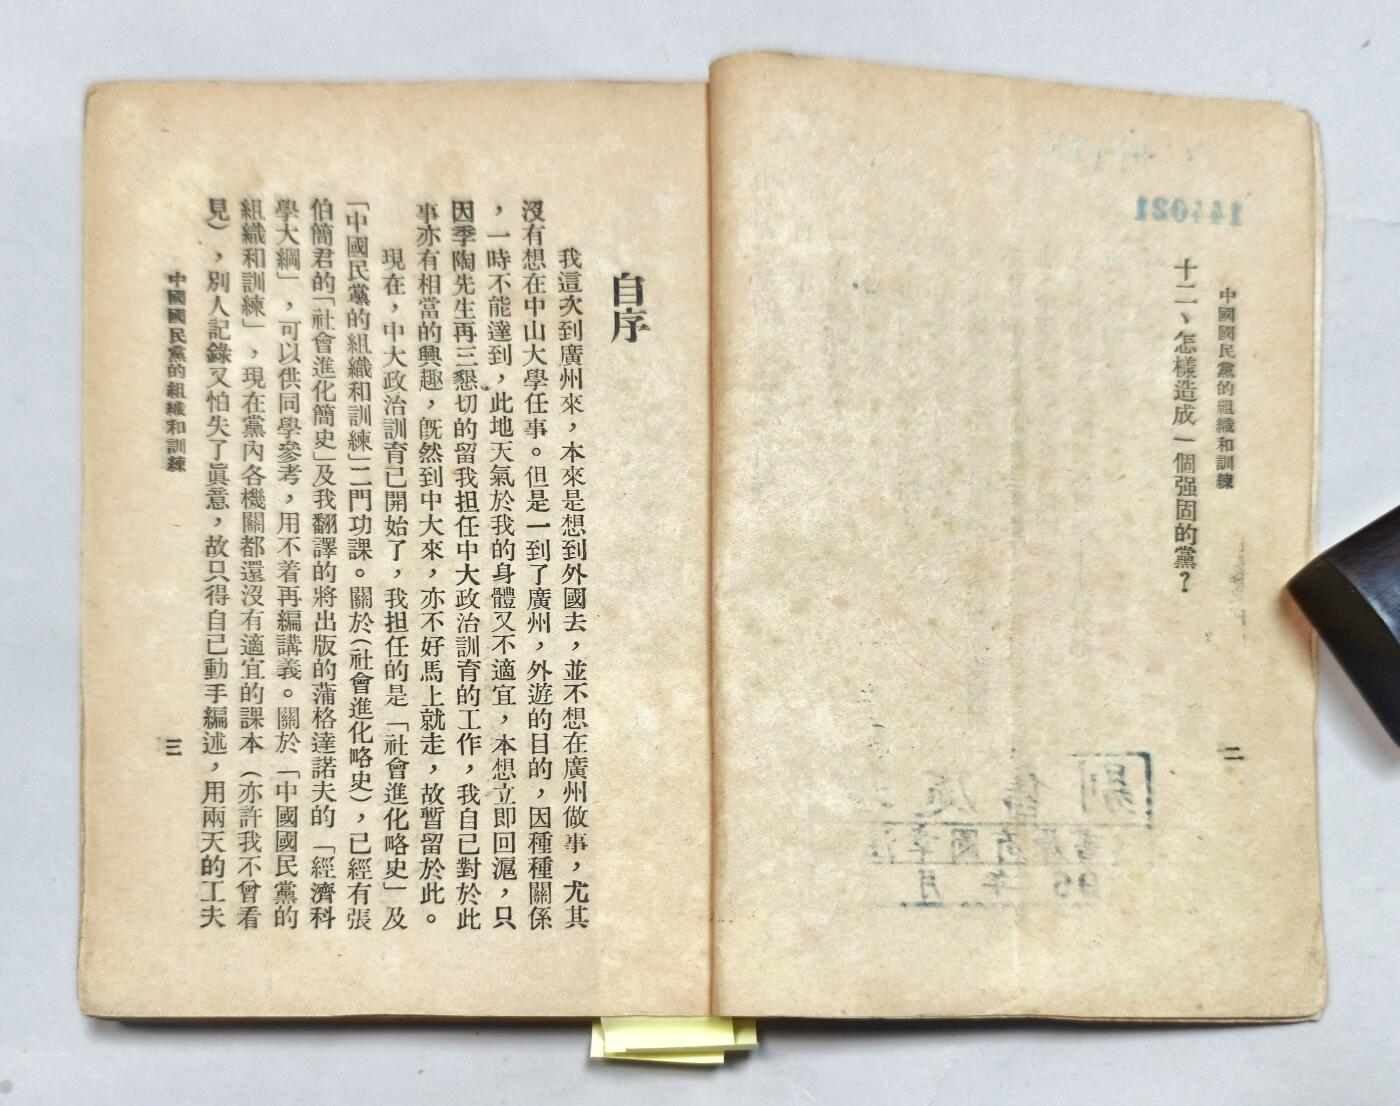 中國國民黨的組織和訓練
二
十二、怎樣造成一個强固的黨？
144021
自序
我這次到廣州來，本來是想到外國去，並不想在廣州做事，尤其
沒有想在中山大學任事。但是一到了廣州，外遊的目的，因種種關係
，一時不能達到，此地天氣於我的身體又不適宜，本想立即回滬，只
因季陶先生再三懇切的留我担任中大政治訓育的工作，我自己對於此
事亦有相當的興趣，旣然到中大來，亦不好馬上就走，故暫留於此。
現在，中大政治訓育已開始了，我担任的是「社會進化略史」及
「中國民黨的組織和訓練」二門功課。關於（社會進化略史），已經有張
伯簡君的「社會進化簡史」及我翻譯的將出版的蒲格達諾夫的「經濟科
學大綱」，可以供同學參考，用不着再編講義。關於「中國國民黨的
組織和訓練」，現在黨內各機關都還沒有適宜的課本（亦許我不曾看
見），別人記錄又怕失了眞意，故只得自己動手編述，用兩天的工夫
中國國民黨的組織和訓練
三